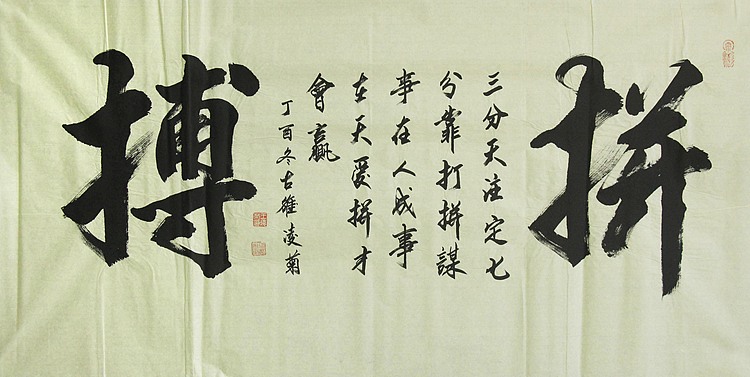 拼
三分天注定七
分靠打拼謀
事在人成事
在天愛拼才
會贏
丁酉冬古雄凌菊
搏